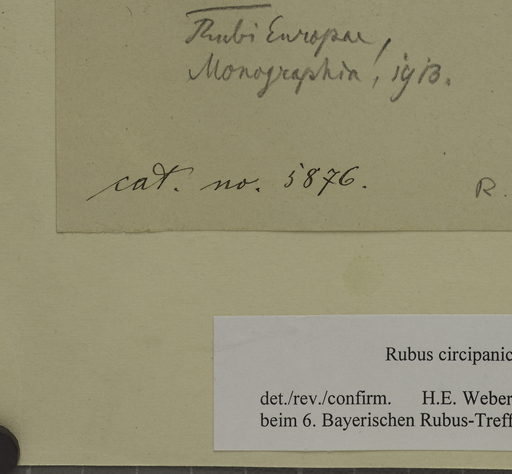 Rubi Europae,
Monographia, 1913.
cat. no. 5876.
R.
Rubus circipanic
det./rev./confirm. H.E. Weber
beim 6. Bayerischen Rubus-Treff